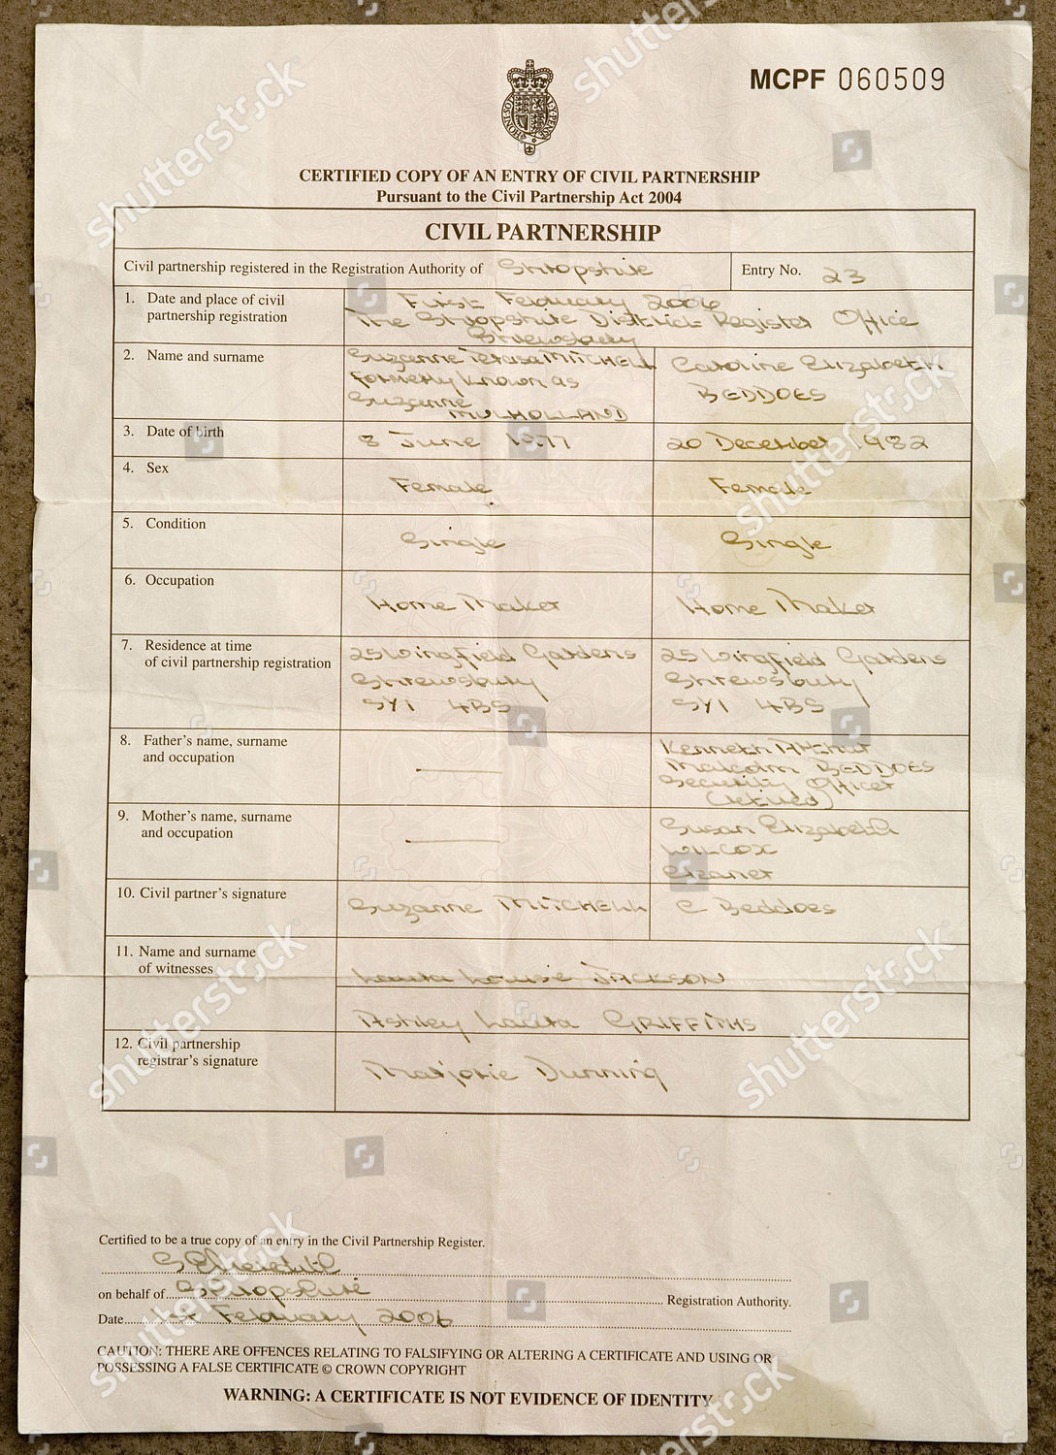 MCPF 060509
CERTIFIED COPY OF AN ENTRY OF CIVIL PARTNERSHIP
Pursuant to the Civil Partnership Act 2004
CIVIL PARTNERSHIP
Civil partnership registered in the Registration Authority of Shropshire Entry No. 23
1. Date and place of civil partnership registration
First February 2006
The Shropshire District Register Office
Shrewsbury
2. Name and surname
Suzanne Teresa MITCHELL
formerly known as
Suzanne
MULHOLLAND
Caroline Elizabeth
BEDDOES
3. Date of birth 8 June 1977 20 December 1982
4. Sex Female Female
5. Condition Single Single
6. Occupation Home Maker Home Maker
7. Residence at time
of civil partnership registration
25 Wingfield Gardens
Shrewsbury
SY1 4BS
25 Wingfield Gardens
Shrewsbury
SY1 4BS
8. Father's name, surname
and occupation
Kenneth Arthur
Malcolm BEDDOES
Security Officer
(retired)
9. Mother's name, surname
and occupation
Susan Elizabeth
WILCOX
Cleaner
10. Civil partner's signature Suzanne MITCHELL C Beddoes
11. Name and surname
of witnesses
Laura Louise JACKSON
Ashley Laura GRIFFITHS
12. Civil partnership
registrar's signature
Marjorie Dunning
Certified to be a true copy of an entry in the Civil Partnership Register.
on behalf of Shropshire Registration Authority.
Date 1st February 2006
CAUTION: THERE ARE OFFENCES RELATING TO FALSIFYING OR ALTERING A CERTIFICATE AND USING OR
POSSESSING A FALSE CERTIFICATE © CROWN COPYRIGHT
WARNING: A CERTIFICATE IS NOT EVIDENCE OF IDENTITY
shutterstock
shutterstock
shutterstock
shutterstock
shutterstock
shutterstock
shutterstock